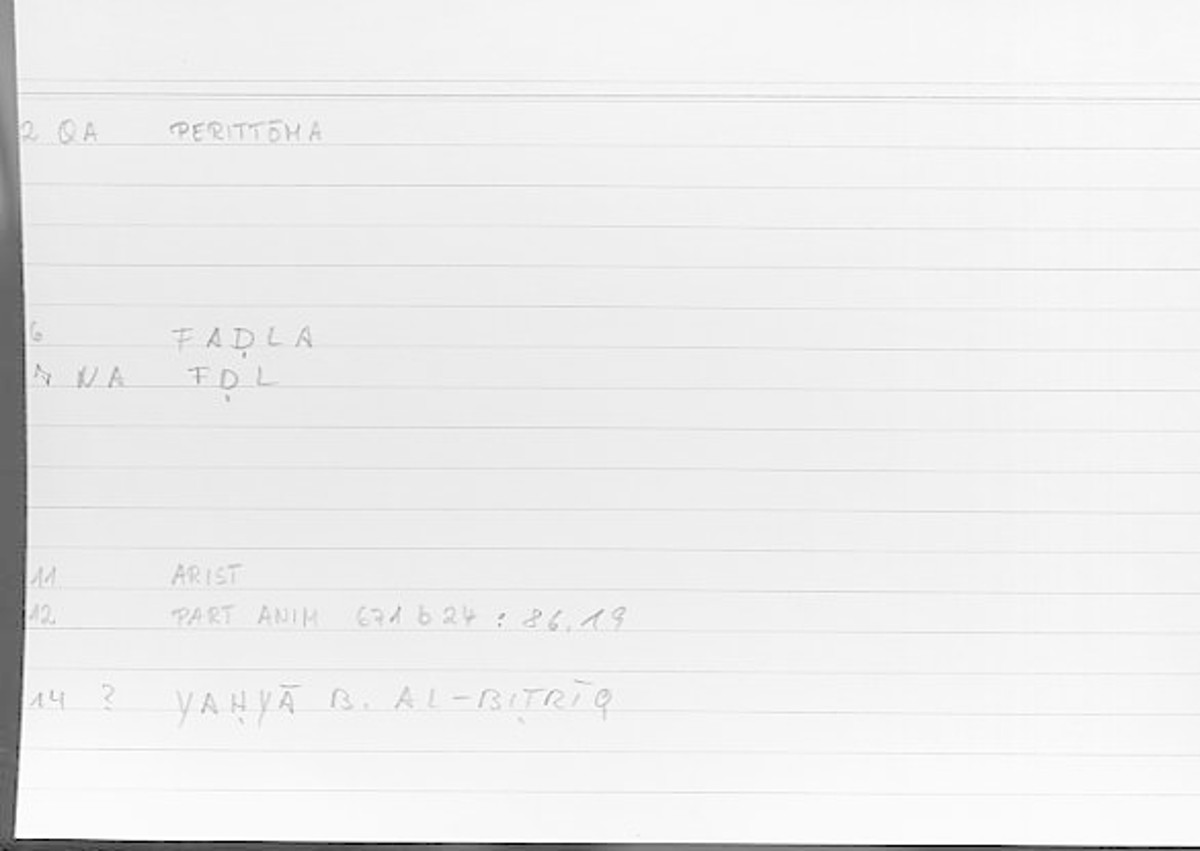 2 QA PERITTŌMA
6 FAḌLA
7 NA FḌL
11 ARIST
12 PART ANIM 671 b 24 : 86.19
14 ? YAḤYĀ B. AL-BIṬRĪQ